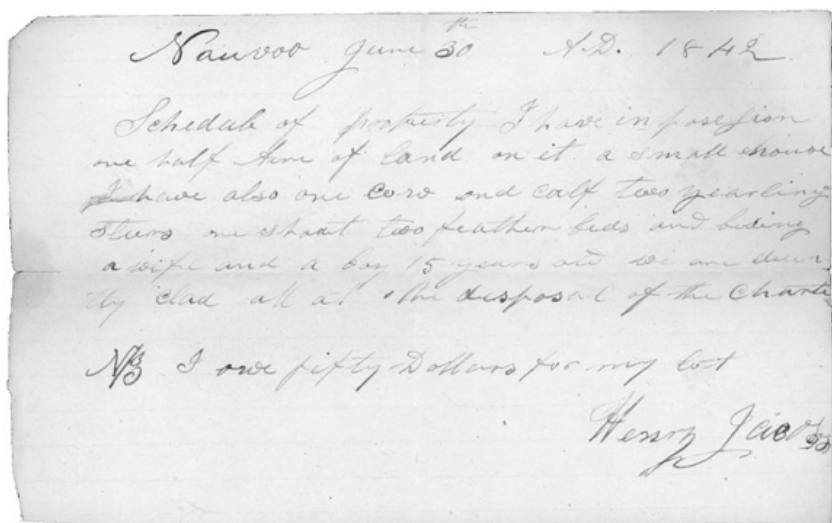 Nauvoo June 30th A.D. 1842
Schedule of property I have in posession
one half Acre of land on it a small house
I have also one cow and calf two yearling
steers one shoat two feather beds and beding
a wife and a boy 15 years old we are decen
tly clad all at the disposal of the Charte
NB I owe fifty Dollars for my lot
Henry Jacobs